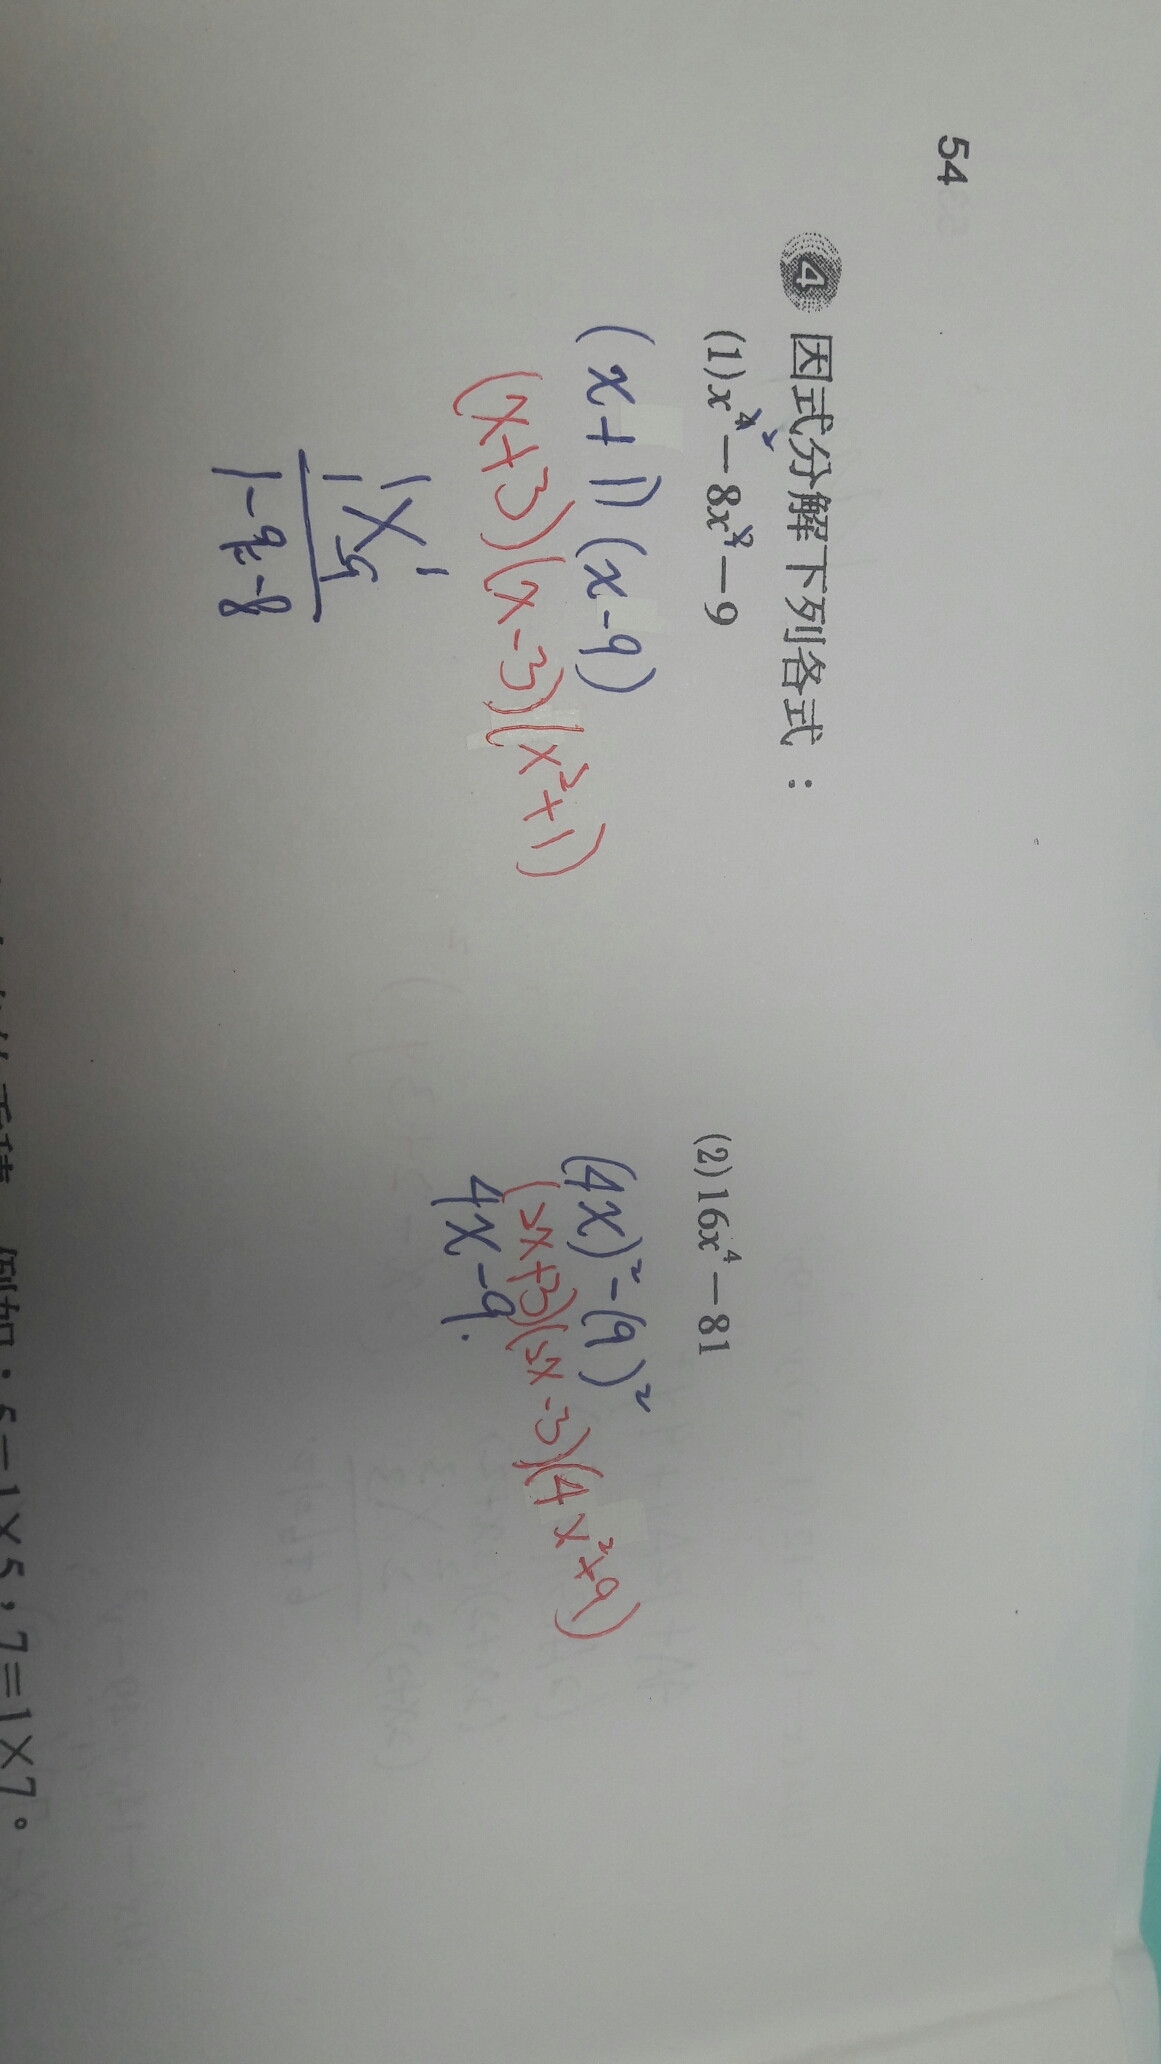 54
4 因式分解下列各式：
(1) x⁴－8x²－9
(x+1)(x-9)
(x+3)(x-3)(x²+1)
1 1
1 -9
1-9=-8
(2) 16x⁴－81
(4x)²-(9)²
(2x+3)(2x-3)(4x²+9)
4x-9.
例如：5=1×5，7=1×7。